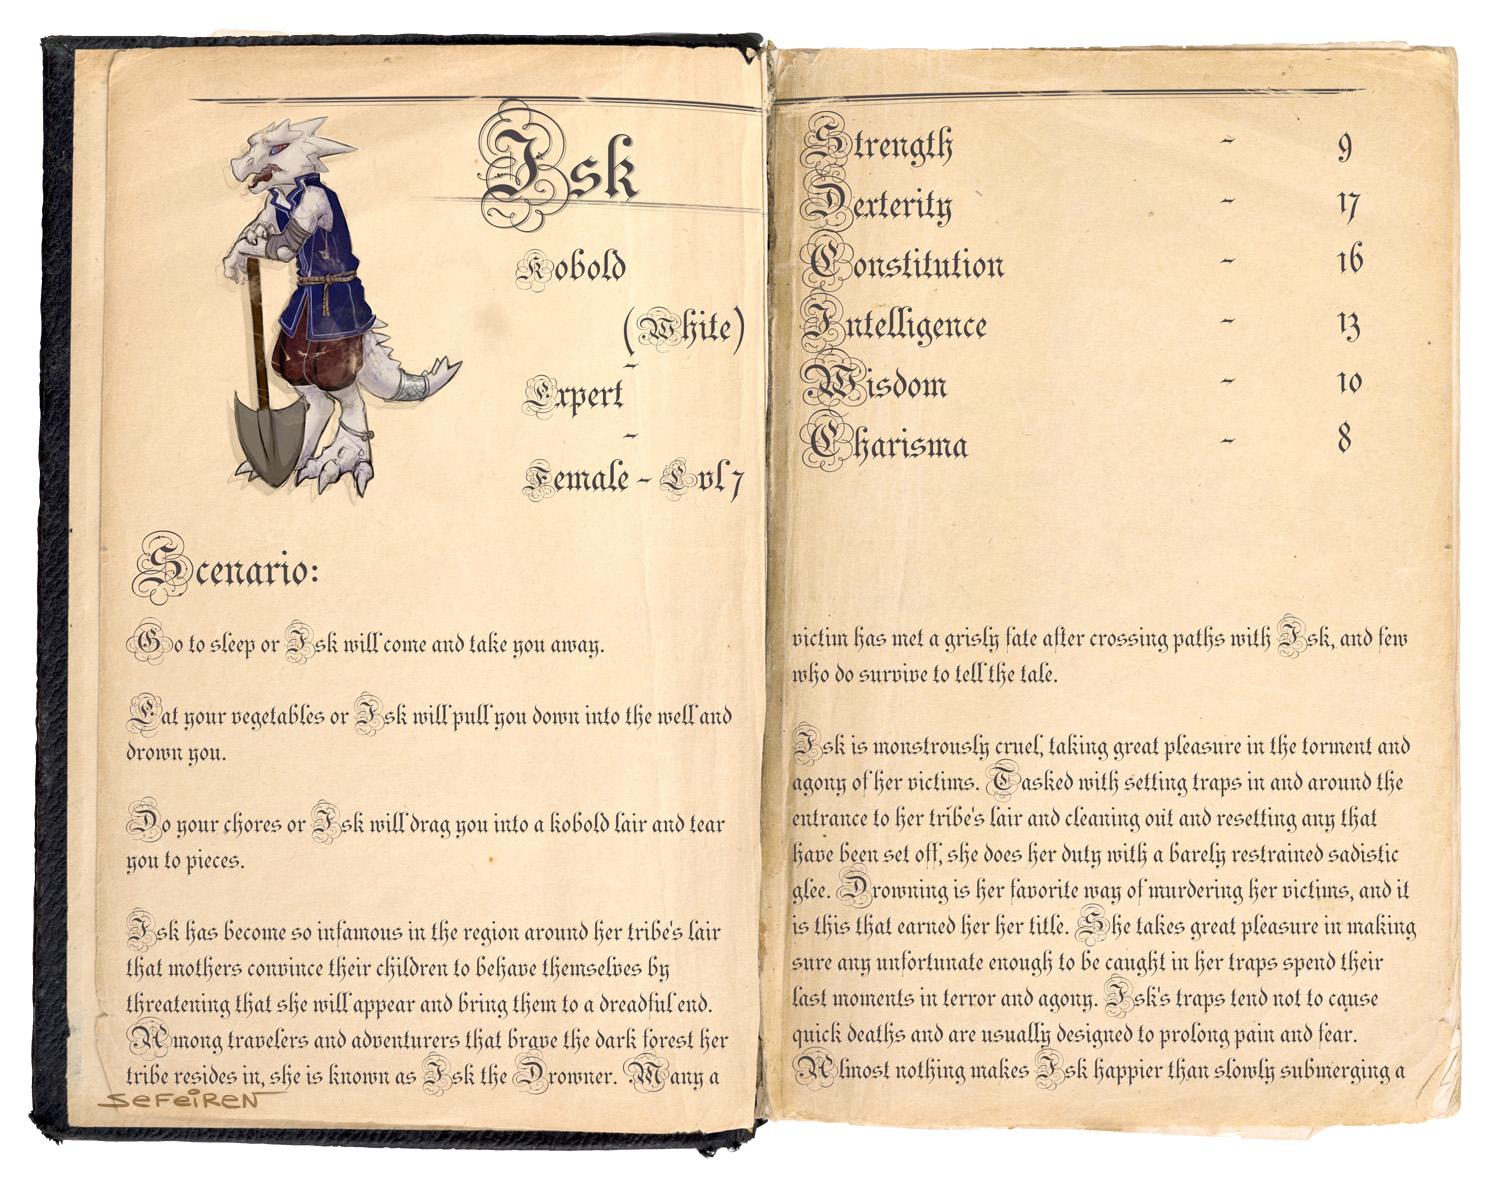 Isk
Kobold
(White)
-
Expert
-
Female - Lvl 7
Scenario:
Go to sleep or Isk will come and take you away.
Eat your vegetables or Isk will pull you down into the well and
drown you.
Do your chores or Isk will drag you into a kobold lair and tear
you to pieces.
Isk has become so infamous in the region around her tribe's lair
that mothers convince their children to behave themselves by
threatening that she will appear and bring them to a dreadful end.
Among travelers and adventurers that brave the dark forest her
tribe resides in, she is known as Isk the Drowner. Many a
SEFEIREN
Strength - 9
Dexterity - 17
Constitution - 16
Intelligence - 13
Wisdom - 10
Charisma - 8
victim has met a grisly fate after crossing paths with Isk, and few
who do survive to tell the tale.
Isk is monstrously cruel, taking great pleasure in the torment and
agony of her victims. Tasked with setting traps in and around the
entrance to her tribe's lair and cleaning out and resetting any that
have been set off, she does her duty with a barely restrained sadistic
glee. Drowning is her favorite way of murdering her victims, and it
is this that earned her her title. She takes great pleasure in making
sure any unfortunate enough to be caught in her traps spend their
last moments in terror and agony. Isk's traps tend not to cause
quick deaths and are usually designed to prolong pain and fear.
Almost nothing makes Isk happier than slowly submerging a